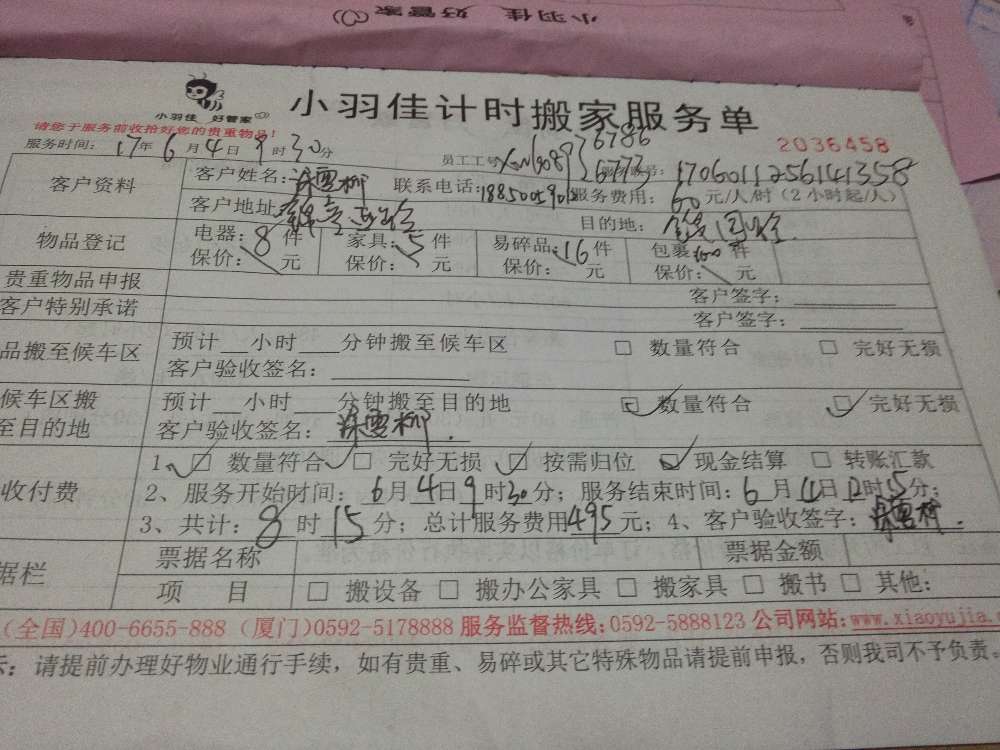 小羽佳 好管家
小羽佳 好管家
小羽佳计时搬家服务单
请您于服务前收拾好您的贵重物品!
2036458
服务时间: 17年6月4日9时30分
员工工号
客户资料
客户姓名:
联系电话:
服务费用: 60元/人/时(2小时起/人)
1706011256141358
客户地址:
目的地:
物品登记
电器: 8件 家具: 5件 易碎品: 16件 包裹: 100件
保价: 元 保价: 元 保价: 元 保价: 元
贵重物品申报
客户签字:
客户特别承诺
客户签字:
品搬至候车区
预计 小时 分钟搬至候车区 □ 数量符合 □ 完好无损
客户验收签名:
候车区搬
至目的地
预计 小时 分钟搬至目的地 ☑ 数量符合 ☑ 完好无损
客户验收签名: 涂雪柳
收付费
1、☑ 数量符合 ☑ 完好无损 ☑ 按需归位 ☑ 现金结算 □ 转账汇款
2、服务开始时间: 6月4日9时30分; 服务结束时间: 6月4日12时15分;
3、共计: 8时15分; 总计服务费用495元; 4、客户验收签字: 涂雪柳
据栏
票据名称 票据金额
项 目 □ 搬设备 □ 搬办公家具 □ 搬家具 □ 搬书 □ 其他:
(全国)400-6655-888 (厦门)0592-5178888 服务监督热线:0592-5888123 公司网站:www.xiaoyujia.c
示: 请提前办理好物业通行手续, 如有贵重、易碎或其它特殊物品请提前申报, 否则我司不予负责。